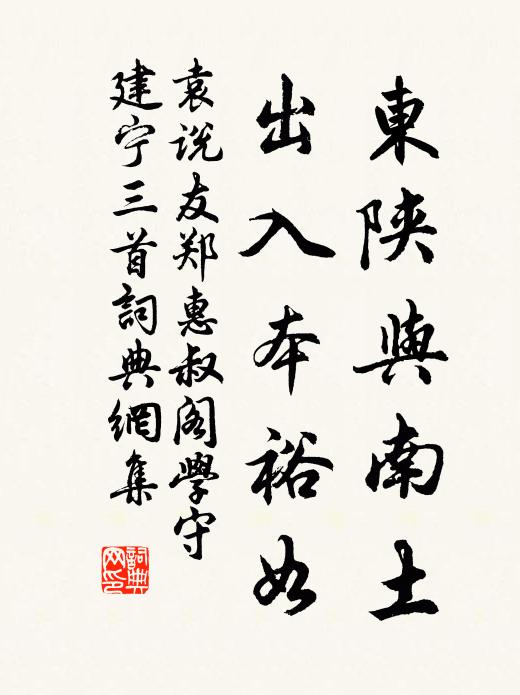 東陝與南土
出入本裕如
袁说友郑惠叔阁學守
建宁三首詞典網集
詞典網印